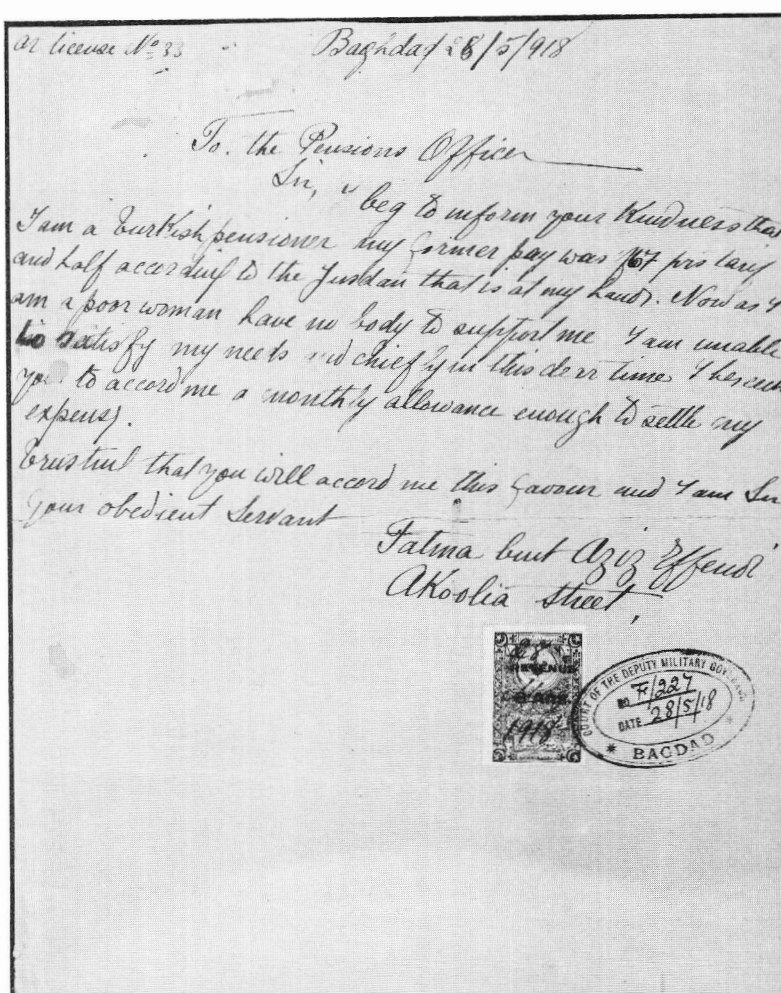 or license No 33
Baghdad 28/5/918
To. the Pensions Officer
Sir, I beg to inform your Kindness that
I am a Turkish pensioner my former pay was 767 prs tarif
and half according to the Jusdan that is at my hands. Now as I
am a poor woman have no body to support me I am unable
to satisfy my needs and chiefly in this dear time I beseech
you to accord me a monthly allowance enough to settle my
expens).
Trustful that you will accord me this favour and I am Sir
your obedient Servant
Fatma bint Aziz Effendi
AKoolia Street,
28
REVENUE
1918
COURT OF THE DEPUTY MILITARY GOVERNOR
NO F/227
DATE 28/5/18
* BAGDAD *